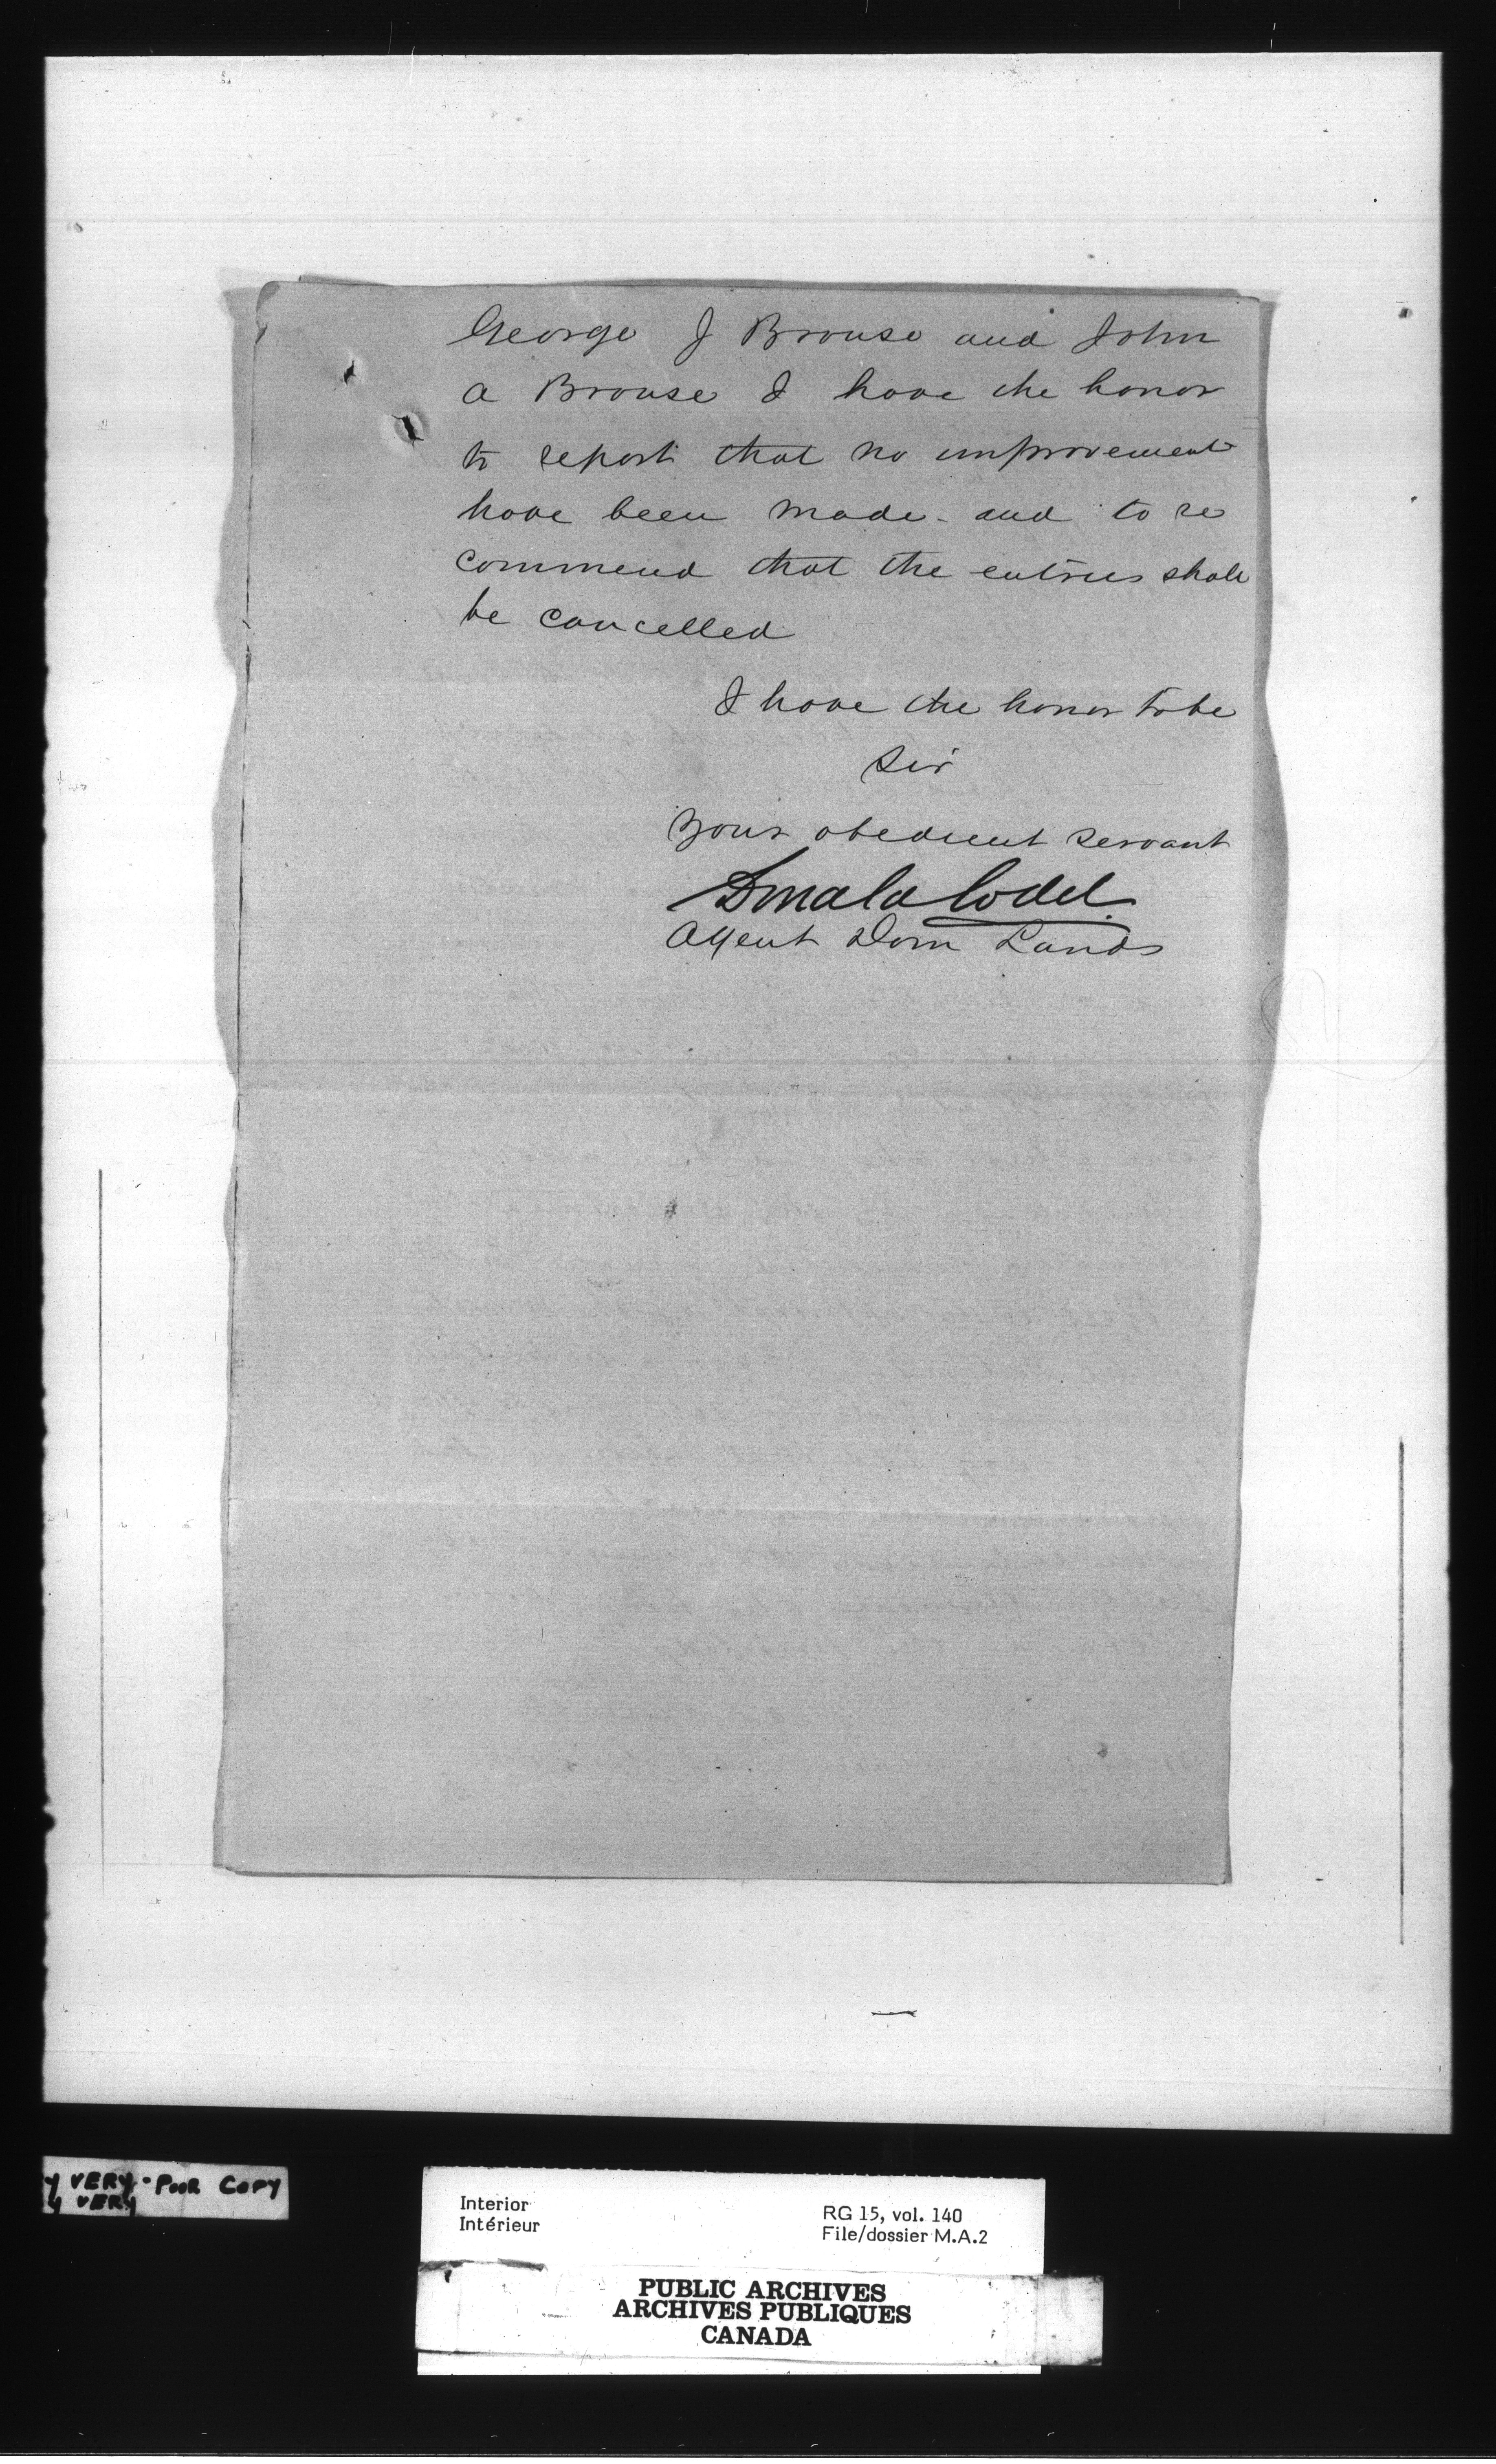 George J Brouse and John
A Brouse I have the honor
to report that no improvement
have been made - and to re
commend that the entries shall
be cancelled
I have the honor to be
Sir
Your obedient servant
Donald Codd
Agent Dom Lands
y VERY - POOR COPY
y VERY
Interior
Intérieur
RG 15, vol. 140
File/dossier M.A.2
PUBLIC ARCHIVES
ARCHIVES PUBLIQUES
CANADA